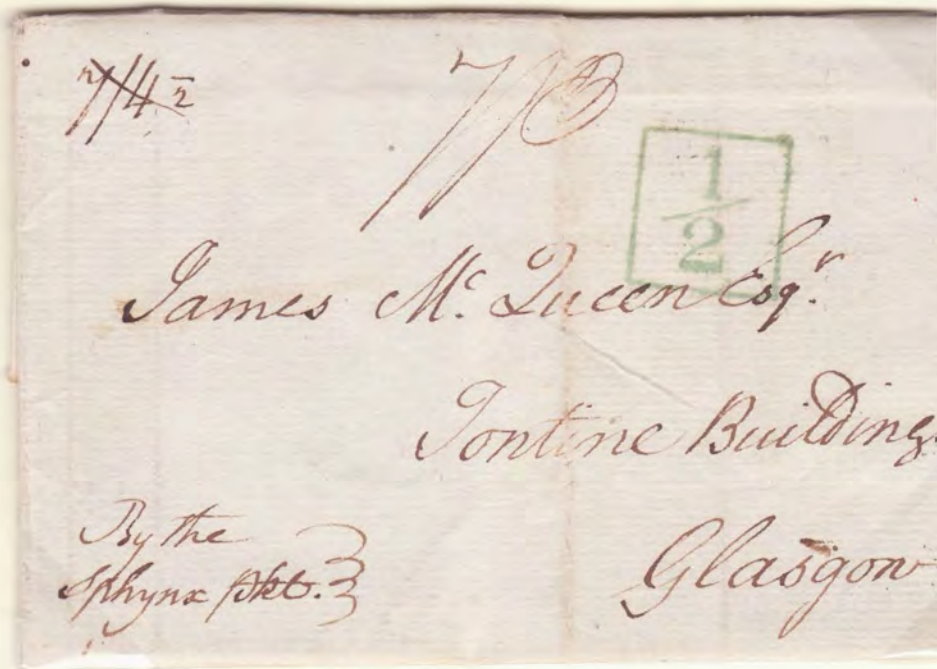 7/4½ 7/3
1/2
James Mc. Queen Esqr.
Tontine Buildings
Glasgow
By the
Sphynx pkt.